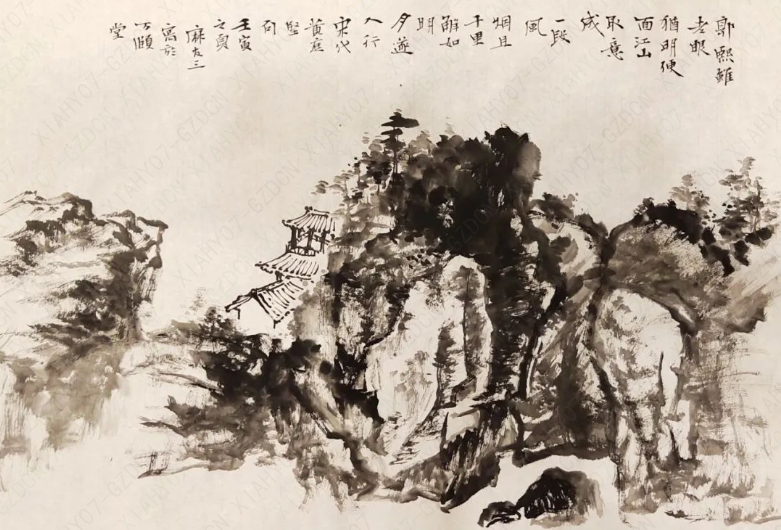 郭熙雖
老眼
猶明便
面江山
取意
成
一段
風
烟且
千里
解如
明
月逐
人行
宋代
黄庭
堅
句
壬寅
之夏
麻友三
寓於
万頃
堂